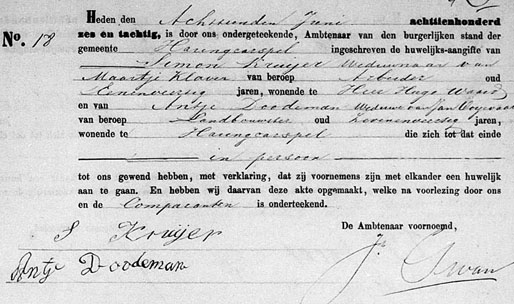 Heden den Achttienden Juni achttienhonderd
No. 18
zes en tachtig, is door ons ondergeteekende, Ambtenaar van den burgerlijken stand der
gemeente Haringcarspel ingeschreven de huwelijks-aangifte van
Simon Kruijer Weduwnaar van
Maartje Klaver van beroep Arbeider oud
Eenenveertig jaren, wonende te Heer Hugo Waard
en van Antje Doodeman Weduwe van Jan
van beroep Landbouwster oud Zevenenveertig jaren,
wonende te Haringcarspel die zich tot dat einde
in persoon
tot ons gewend hebben, met verklaring, dat zij voornemens zijn met elkander een huwelijk
aan te gaan. En hebben wij daarvan deze akte opgemaakt, welke na voorlezing door ons
en de Comparanten is onderteekend.
De Ambtenaar voornoemd,
S Kruijer
Antje Doodeman
Swan